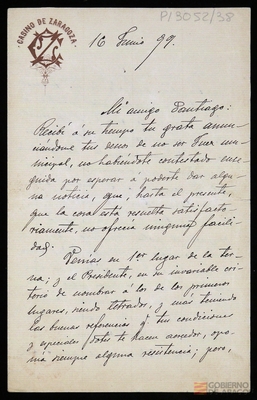 CASINO DE ZARAGOZA
P/3052/38
16 Junio 99.
Mi amigo Santiago:
Recibí á su tiempo tu grata anun-
ciándome tus deseos de no ser Juez mu-
nicipal, no habiéndote contestado ense-
guida por esperar á poderte dar algu-
na noticia, que, hasta el presente,
que la cosa está resuelta satisfacto-
riamente, no ofrecía ninguna facili-
dad.
Venías en 1er lugar de la ter-
na; y el Presidente, en su invariable cri-
terio de nombrar á los de los primeros
lugares, siendo letrados, y más teniendo
las buenas referencias q. tus condiciones
y especiales dotes te hacen acreedor, opo-
nía siempre alguna resistencia; pero,
GOBIERNO
DE ARAGON